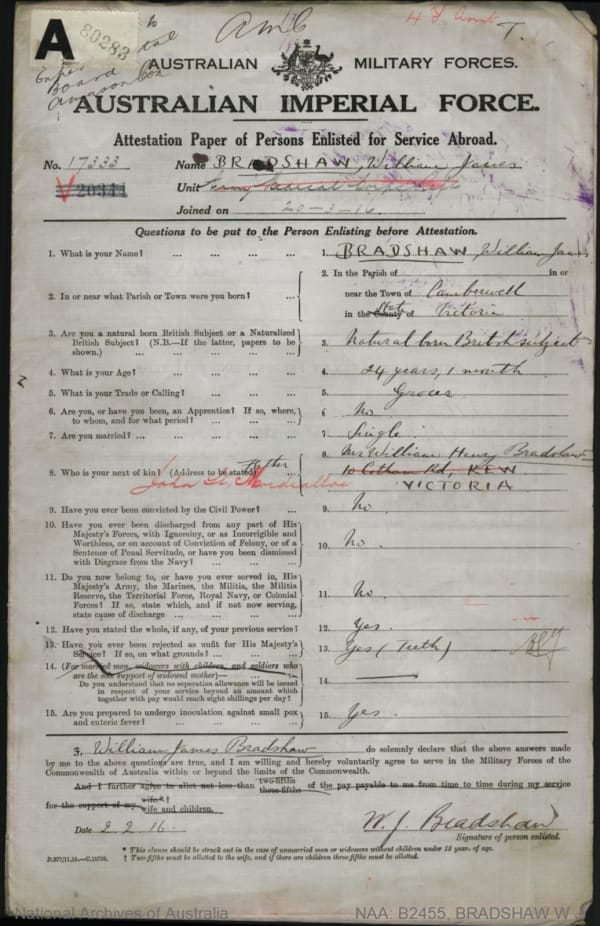 A
80283
AMC
T.
Board
AUSTRALIAN MILITARY FORCES.
AUSTRALIAN IMPERIAL FORCE.
Attestation Paper of Persons Enlisted for Service Abroad.
No. 17333 Name BRADSHAW, William James
20311 Unit
Joined on 20-3-16.
Questions to be put to the Person Enlisting before Attestation.
1. What is your Name? ... ... ... ... 1. BRADSHAW, William James
2. In or near what Parish or Town were you born? ... 2. In the Parish of in or
near the Town of Camberwell
in the County State of Victoria
3. Are you a natural born British Subject or a Naturalized
British Subject? (N.B.—If the latter, papers to be
shown.) ... ... ... ... ... 3. Natural born British subject
4. What is your Age? ... ... ... ... 4. 24 years, 1 month
5. What is your Trade or Calling? ... ... ... 5. Grocer
6. Are you, or have you been, an Apprentice? If so, where,
to whom, and for what period? ... ... ... 6 No.
7. Are you married? ... ... ... ... 7. Single
8. Who is your next of kin? (Address to be stated) Father 8. Mr William Henry Bradshaw
10 Cotham Rd, KEW
VICTORIA
John St, Mordialloc
9. Have you ever been convicted by the Civil Power? ... 9. No
10. Have you ever been discharged from any part of His
Majesty's Forces, with Ignominy, or as Incorrigible and
Worthless, or on account of Conviction of Felony, or of a
Sentence of Penal Servitude, or have you been dismissed
with Disgrace from the Navy? ... ... ... 10. No.
11. Do you now belong to, or have you ever served in, His
Majesty's Army, the Marines, the Militia, the Militia
Reserve, the Territorial Force, Royal Navy, or Colonial
Forces? If so, state which, and if not now serving,
state cause of discharge ... ... ... ... 11. No.
12. Have you stated the whole, if any, of your previous service? 12. Yes.
13. Have you ever been rejected as unfit for His Majesty's
Service? If so, on what grounds? ... ... ... 13. Yes (Teeth)
14. (For married men, widowers with children, and soldiers who
are the sole support of widowed mother)—
Do you understand that no separation allowance will be issued
in respect of your service beyond an amount which
together with pay would reach eight shillings per day? 14.
15. Are you prepared to undergo inoculation against small pox
and enteric fever? ... ... ... ... 15. Yes.
I, William James Bradshaw do solemnly declare that the above answers made
by me to the above questions are true, and I am willing and hereby voluntarily agree to serve in the Military Forces of the
Commonwealth of Australia within or beyond the limits of the Commonwealth.
And I further agree to allot not less than two-fifths three-fifths of the pay payable to me from time to time during my service
for the support of my wife.*† wife and children.
Date 2.2.16. W. J. Bradshaw
Signature of person enlisted.
* This clause should be struck out in the case of unmarried men or widowers without children under 18 year. of age.
† Two-fifths must be allotted to the wife, and if there are children three-fifths must be allotted.
D.577/11.15.—C.15735.
National Archives of Australia NAA: B2455, BRADSHAW W